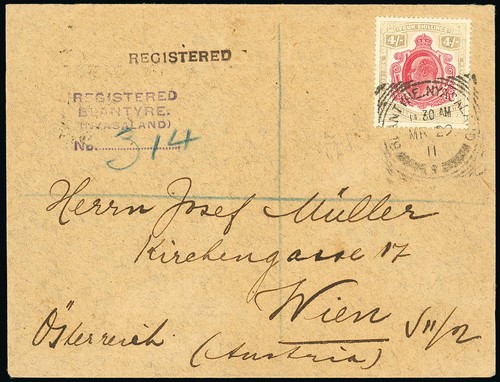 REGISTERED
REGISTERED
BLANTYRE.
(NYASALAND)
No. 314
FOUR SHILLINGS
4/- 4/-
BLANTYRE. NYASALAND
11 30 AM
MR 29
11
Herrn Josef Müller
Kirchengasse 17
Wien VII/2
Österreich (Austria)